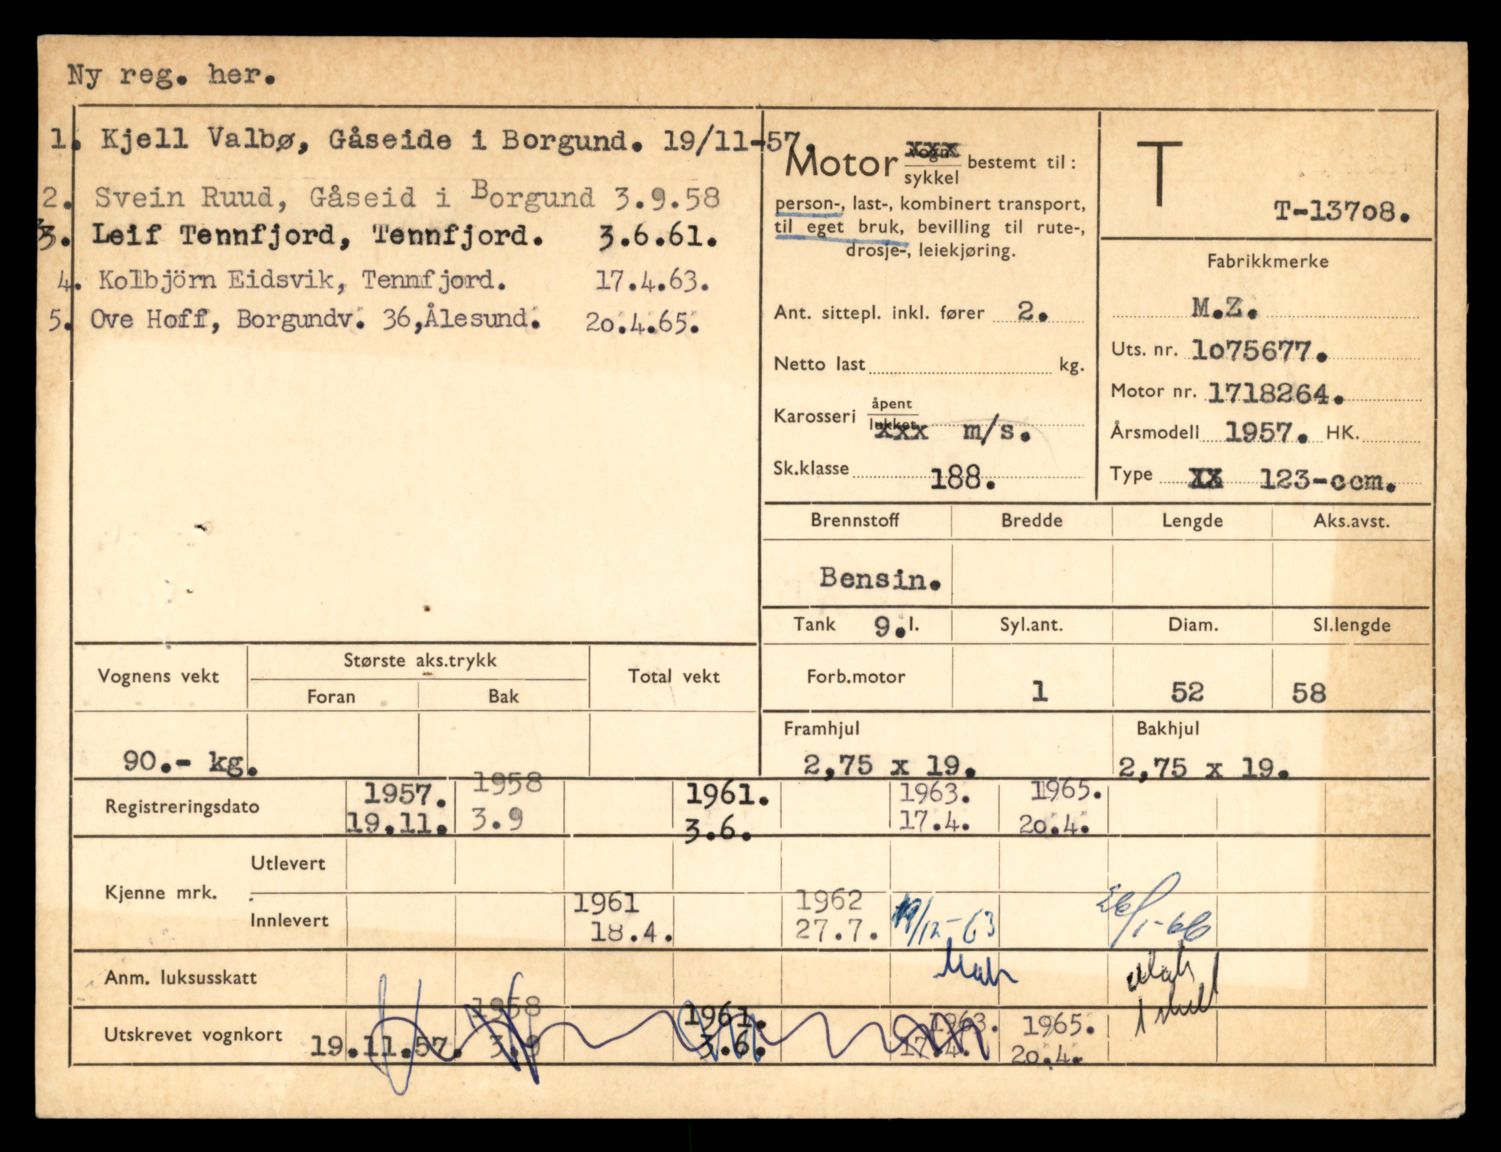 Ny reg. her.
1. Kjell Valbø, Gåseide i Borgund. 19/11-57.
2. Svein Ruud, Gåseid i Borgund 3.9.58
3. Leif Tennfjord, Tennfjord. 3.6.61.
4. Kolbjörn Eidsvik, Tennfjord. 17.4.63.
5. Ove Hoff, Borgundv. 36, Ålesund. 20.4.65.
Motor vogn sykkel bestemt til:
person-, last-, kombinert transport,
til eget bruk, bevilling til rute-,
drosje-, leiekjøring.
Ant. sittepl. inkl. fører 2.
Netto last kg.
Karosseri åpent lukket xxx m/s.
Sk.klasse 188.
T
T-13708.
Fabrikkmerke
M.Z.
Uts. nr. 1075677.
Motor nr. 1718264.
Årsmodell 1957. HK.
Type XX 123-ccm.
Brennstoff Bredde Lengde Aks.avst.
Bensin.
Tank 9. l. Syl.ant. Diam. Sl.lengde
Forb.motor 1 52 58
Framhjul Bakhjul
2,75 x 19. 2,75 x 19.
Vognens vekt Største aks.trykk Total vekt
Foran Bak
90.- kg.
Registreringsdato 1957. 1958 1961. 1963. 1965.
19.11. 3.9 3.6. 17.4. 20.4.
Kjenne mrk. Utlevert
Innlevert 1961 1962 19/12-63 26/1-66
18.4. 27.7.
Anm. luksusskatt
Utskrevet vognkort 1958 1961. 1963. 1965.
19.11.57. 3.9 3.6. 17.4. 20.4.